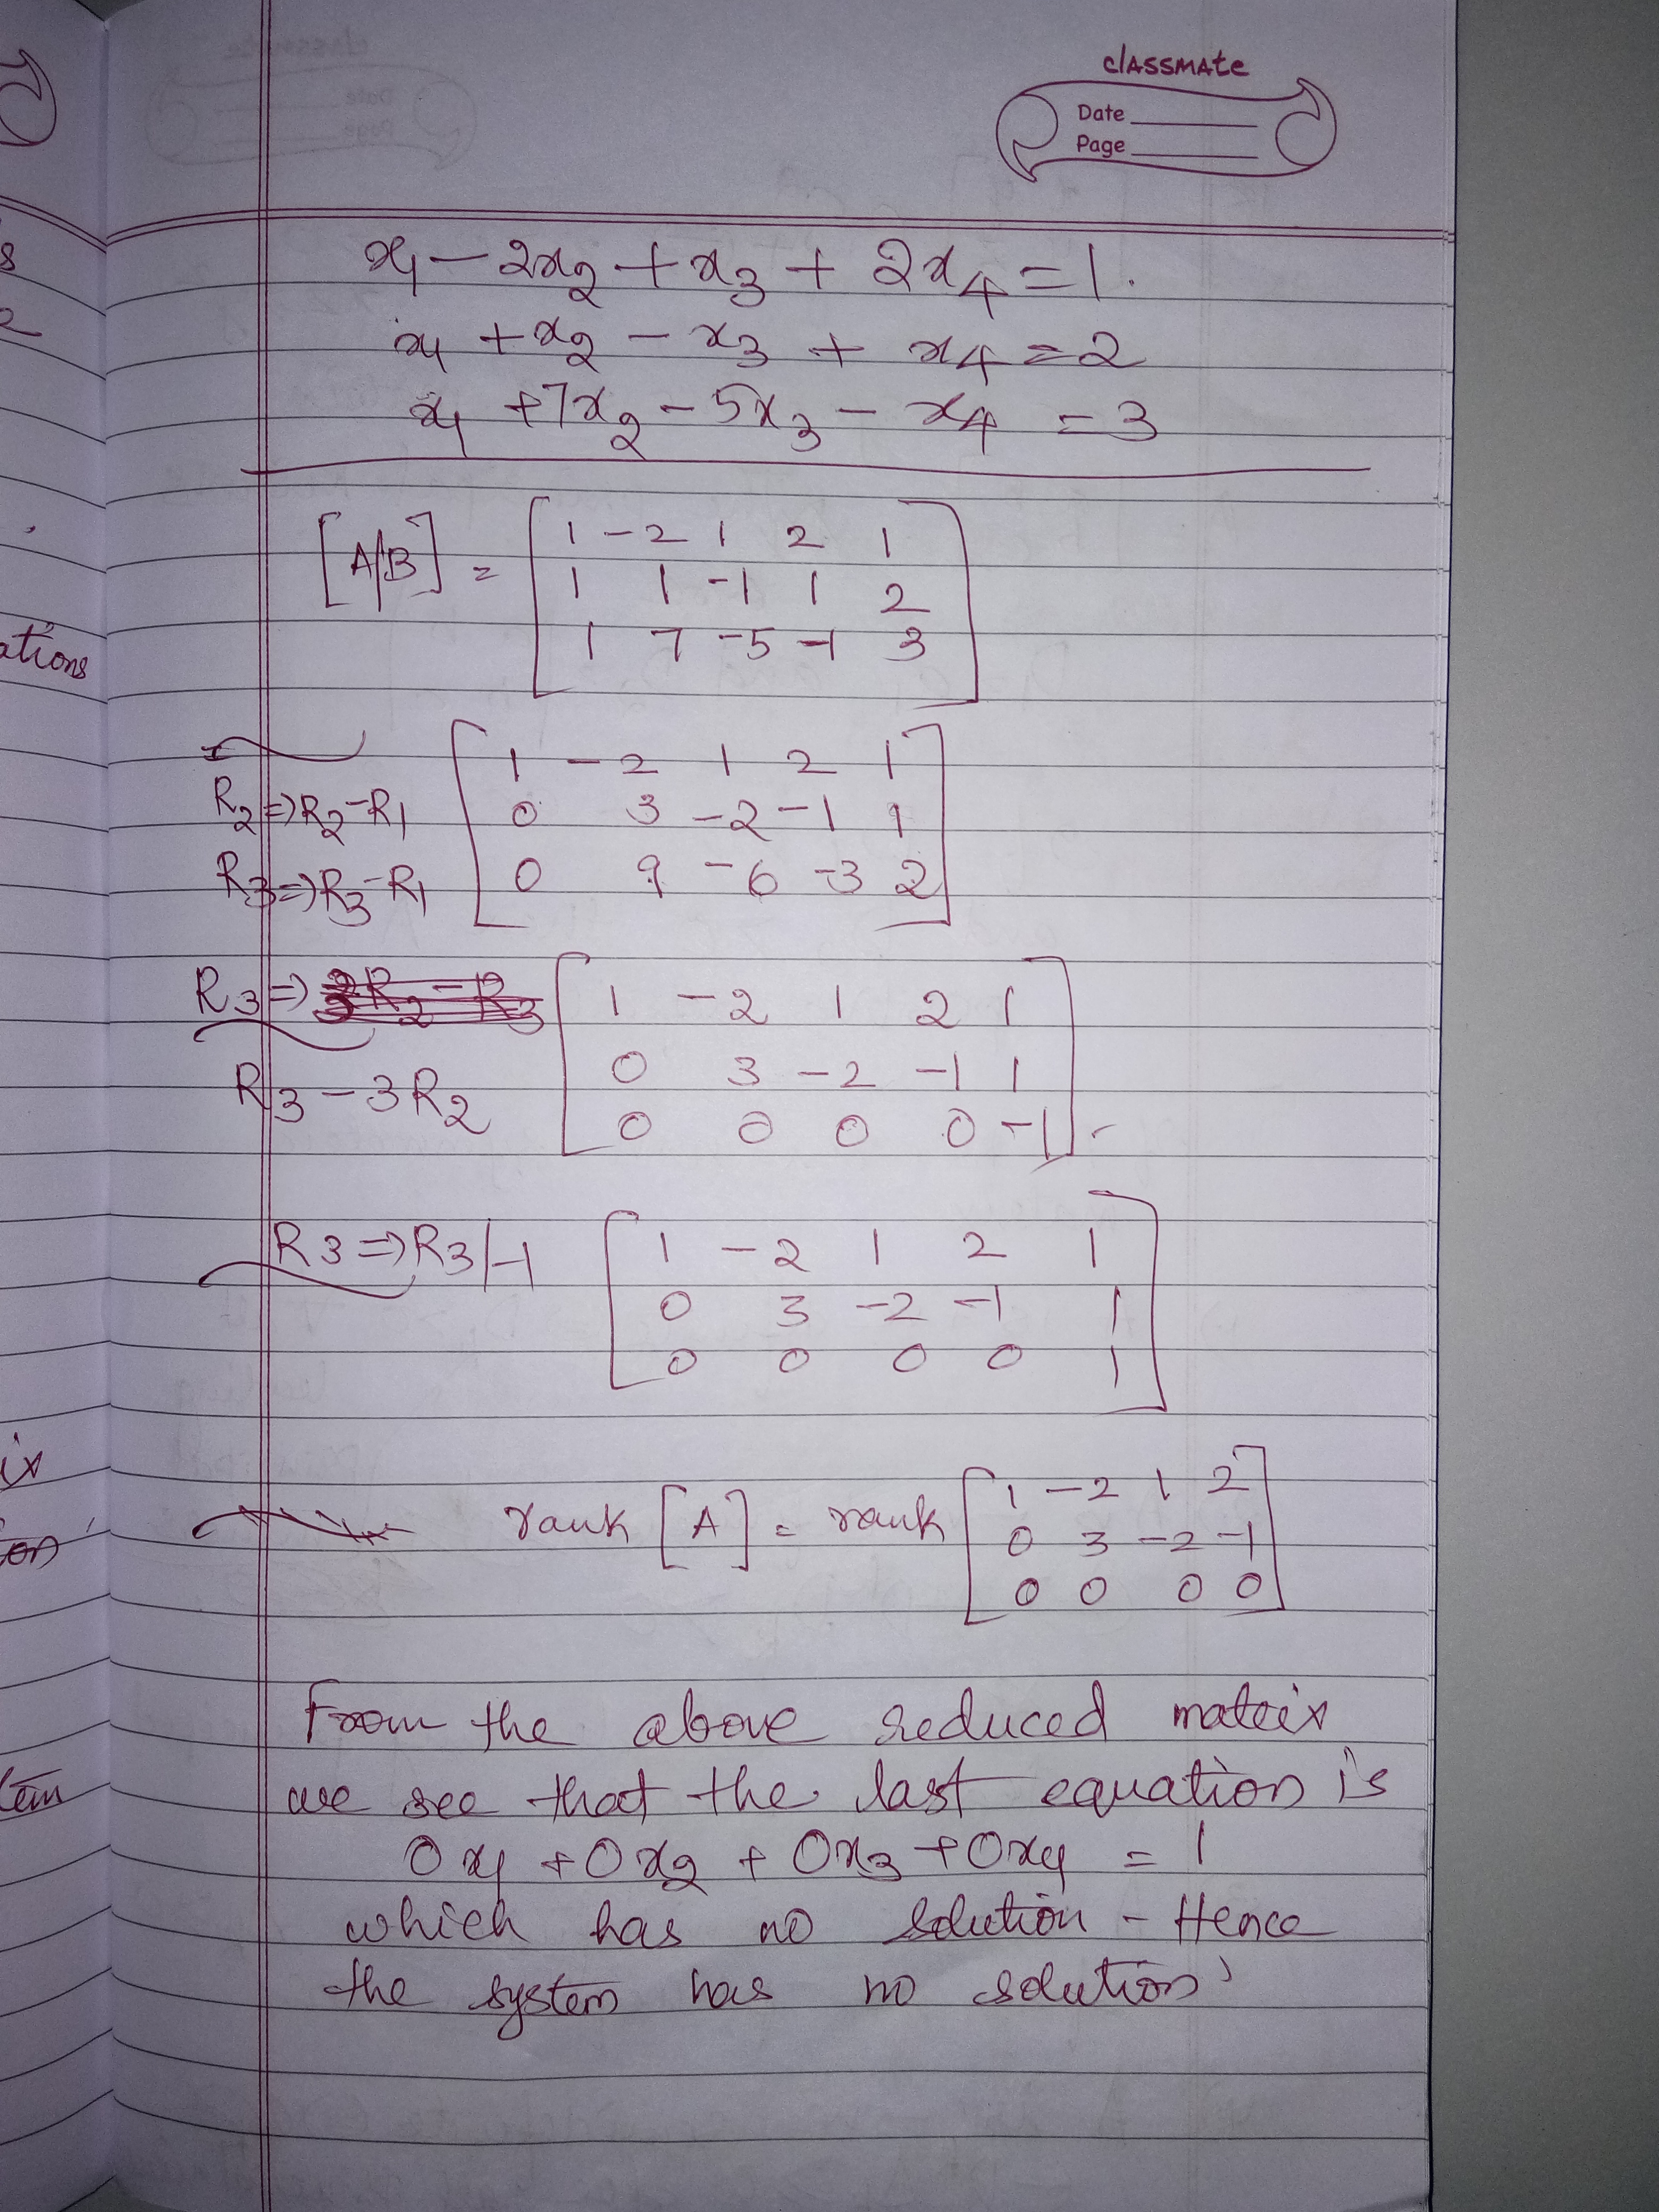 classmate
Date
Page
x₁ - 2x₂ + x₃ + 2x₄ = 1.
x₁ + x₂ - x₃ + x₄ = 2
x₁ + 7x₂ - 5x₃ - x₄ = 3
[A/B] =
1 -2 1 2 1
1 1 -1 1 2
1 7 -5 -1 3
R₂ => R₂ - R₁
R₃ => R₃ - R₁
1 -2 1 2 1
0 3 -2 -1 1
0 9 -6 -3 2
R₃ => 
R₃ - 3R₂
1 -2 1 2 1
0 3 -2 -1 1
0 0 0 0 -1
R₃ => R₃/-1
1 -2 1 2 1
0 3 -2 -1 1
0 0 0 0 1
rank [A] = rank
1 -2 1 2
0 3 -2 -1
0 0 0 0
From the above reduced matrix
we see that the last equation is
0x₁ + 0x₂ + 0x₃ + 0x₄ = 1
which has no solution - Hence
the system has no solution
ations